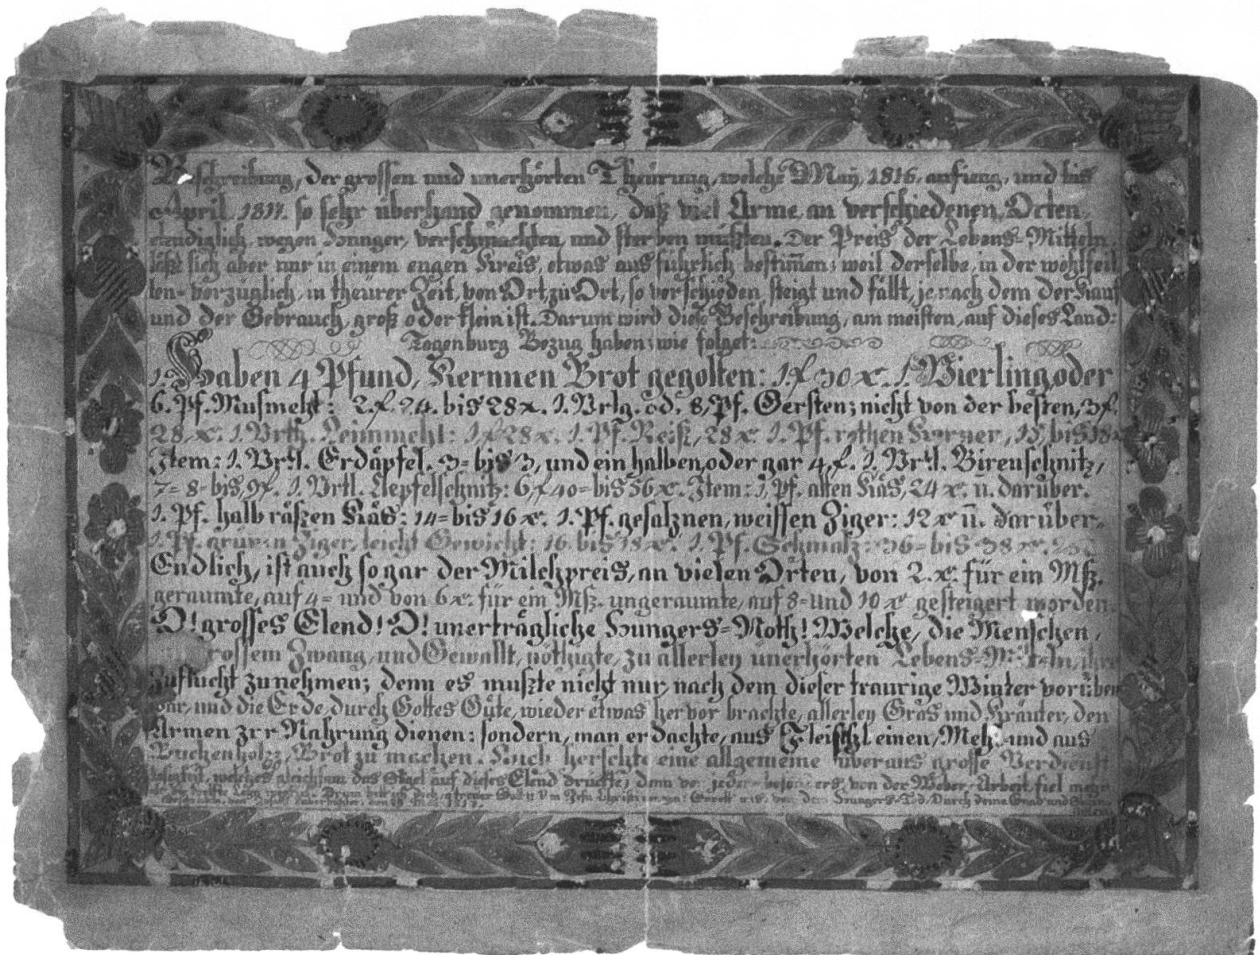 Beschreibung, der grossen und unerhörten Theurung, welche May, 1816. anfieng, und bis
April, 1817. so sehr überhand genommen, daß viel Arme, an verschiedenen, Orten,
elendiglich, wegen Hunger, verschmachten, und sterben mußten. Der Preis der Lebens-Mitteln
läßt sich aber nur in einem engen Kreis, etwas ausführlich bestim̄en; weil derselbe, in der wohlfeil
ten- vorzüglich, in theurer Zeit, von Ort, zu Ort, so verschieden steigt und fällt, je nach dem der Kauf
und der Gebrauch, groß oder klein ist. Darum wird diese Beschreibung, am meisten, auf dieses Land:
Togenburg Bezug haben; wie folget:
1. Haben 4 Pfund, Kernnen Brot gegolten: 1 f 30 x. 1. Vierling, oder
6. Pf. Musmehl: 2. f. 24. bis 28 x. 1. Vrlg. od. 8, Pf. Gersten; nicht von der besten, 3 f.
28, x. 1. Vrtl. Leinmehl: 1 f 28 x. 1. Pf. Reiß, 28 x. 1. Pf. rothen Korner, 15, bis 18 x
Item: 1. Vrtl. Erdäpfel. 3- bis 3, und ein halben, oder gar 4, f. 1. Vrtl. Birenschnitz,
7- 8- bis, 9 f. 1. Vrtl. Aepfelschnitz: 6 f 40- bis 56 x. Item: 1, Pf. alten Käs, 24 x. u. darüber.
1. Pf. halb räßen Käs: 14- bis 16 x. 1. Pf. gesalznen, weissen Ziger: 12 x ū. darüber-
1. Pf. grünen Ziger, leicht Gewicht: 16 bis 18 x. 1. Pf. Schmalz: 36- bis 38 x.
Endlich, ist auch sogar der Milchpreis, an vielen Orten, von 2. x. für ein Mß.
geraumte, auf 4- und von 6 x. für ein Mß. ungeraumte, auf 8- und 10 x gesteigert worden.
O! grosses Elend! O! unerträgliche Hungers-Noth! Welche, die Menschen,
grossem Zwang, und Gewallt, nöthigte, zu allerley unerhörten Lebens-Mitteln, ihre
Zuflucht zu nehmen; denn es mußte nicht nur, nach dem dieser traurige Winter vorüber
war, und die Erde, durch Gottes Güte, wieder etwas hervor brachte, allerley Gras und Kräuter, den
Armen zur Nahrung dienen: sondern, man erdachte, aus Fleisch, einen, Mehl und aus
Buchenholz, Brot zu machen. Auch herschte eine allgemeine überaus grosse Verdienst
losigkeit, welches gleichsam das Sigel auf dieses Elend druckte; denn von der Weber-Arbeit fiel mehr